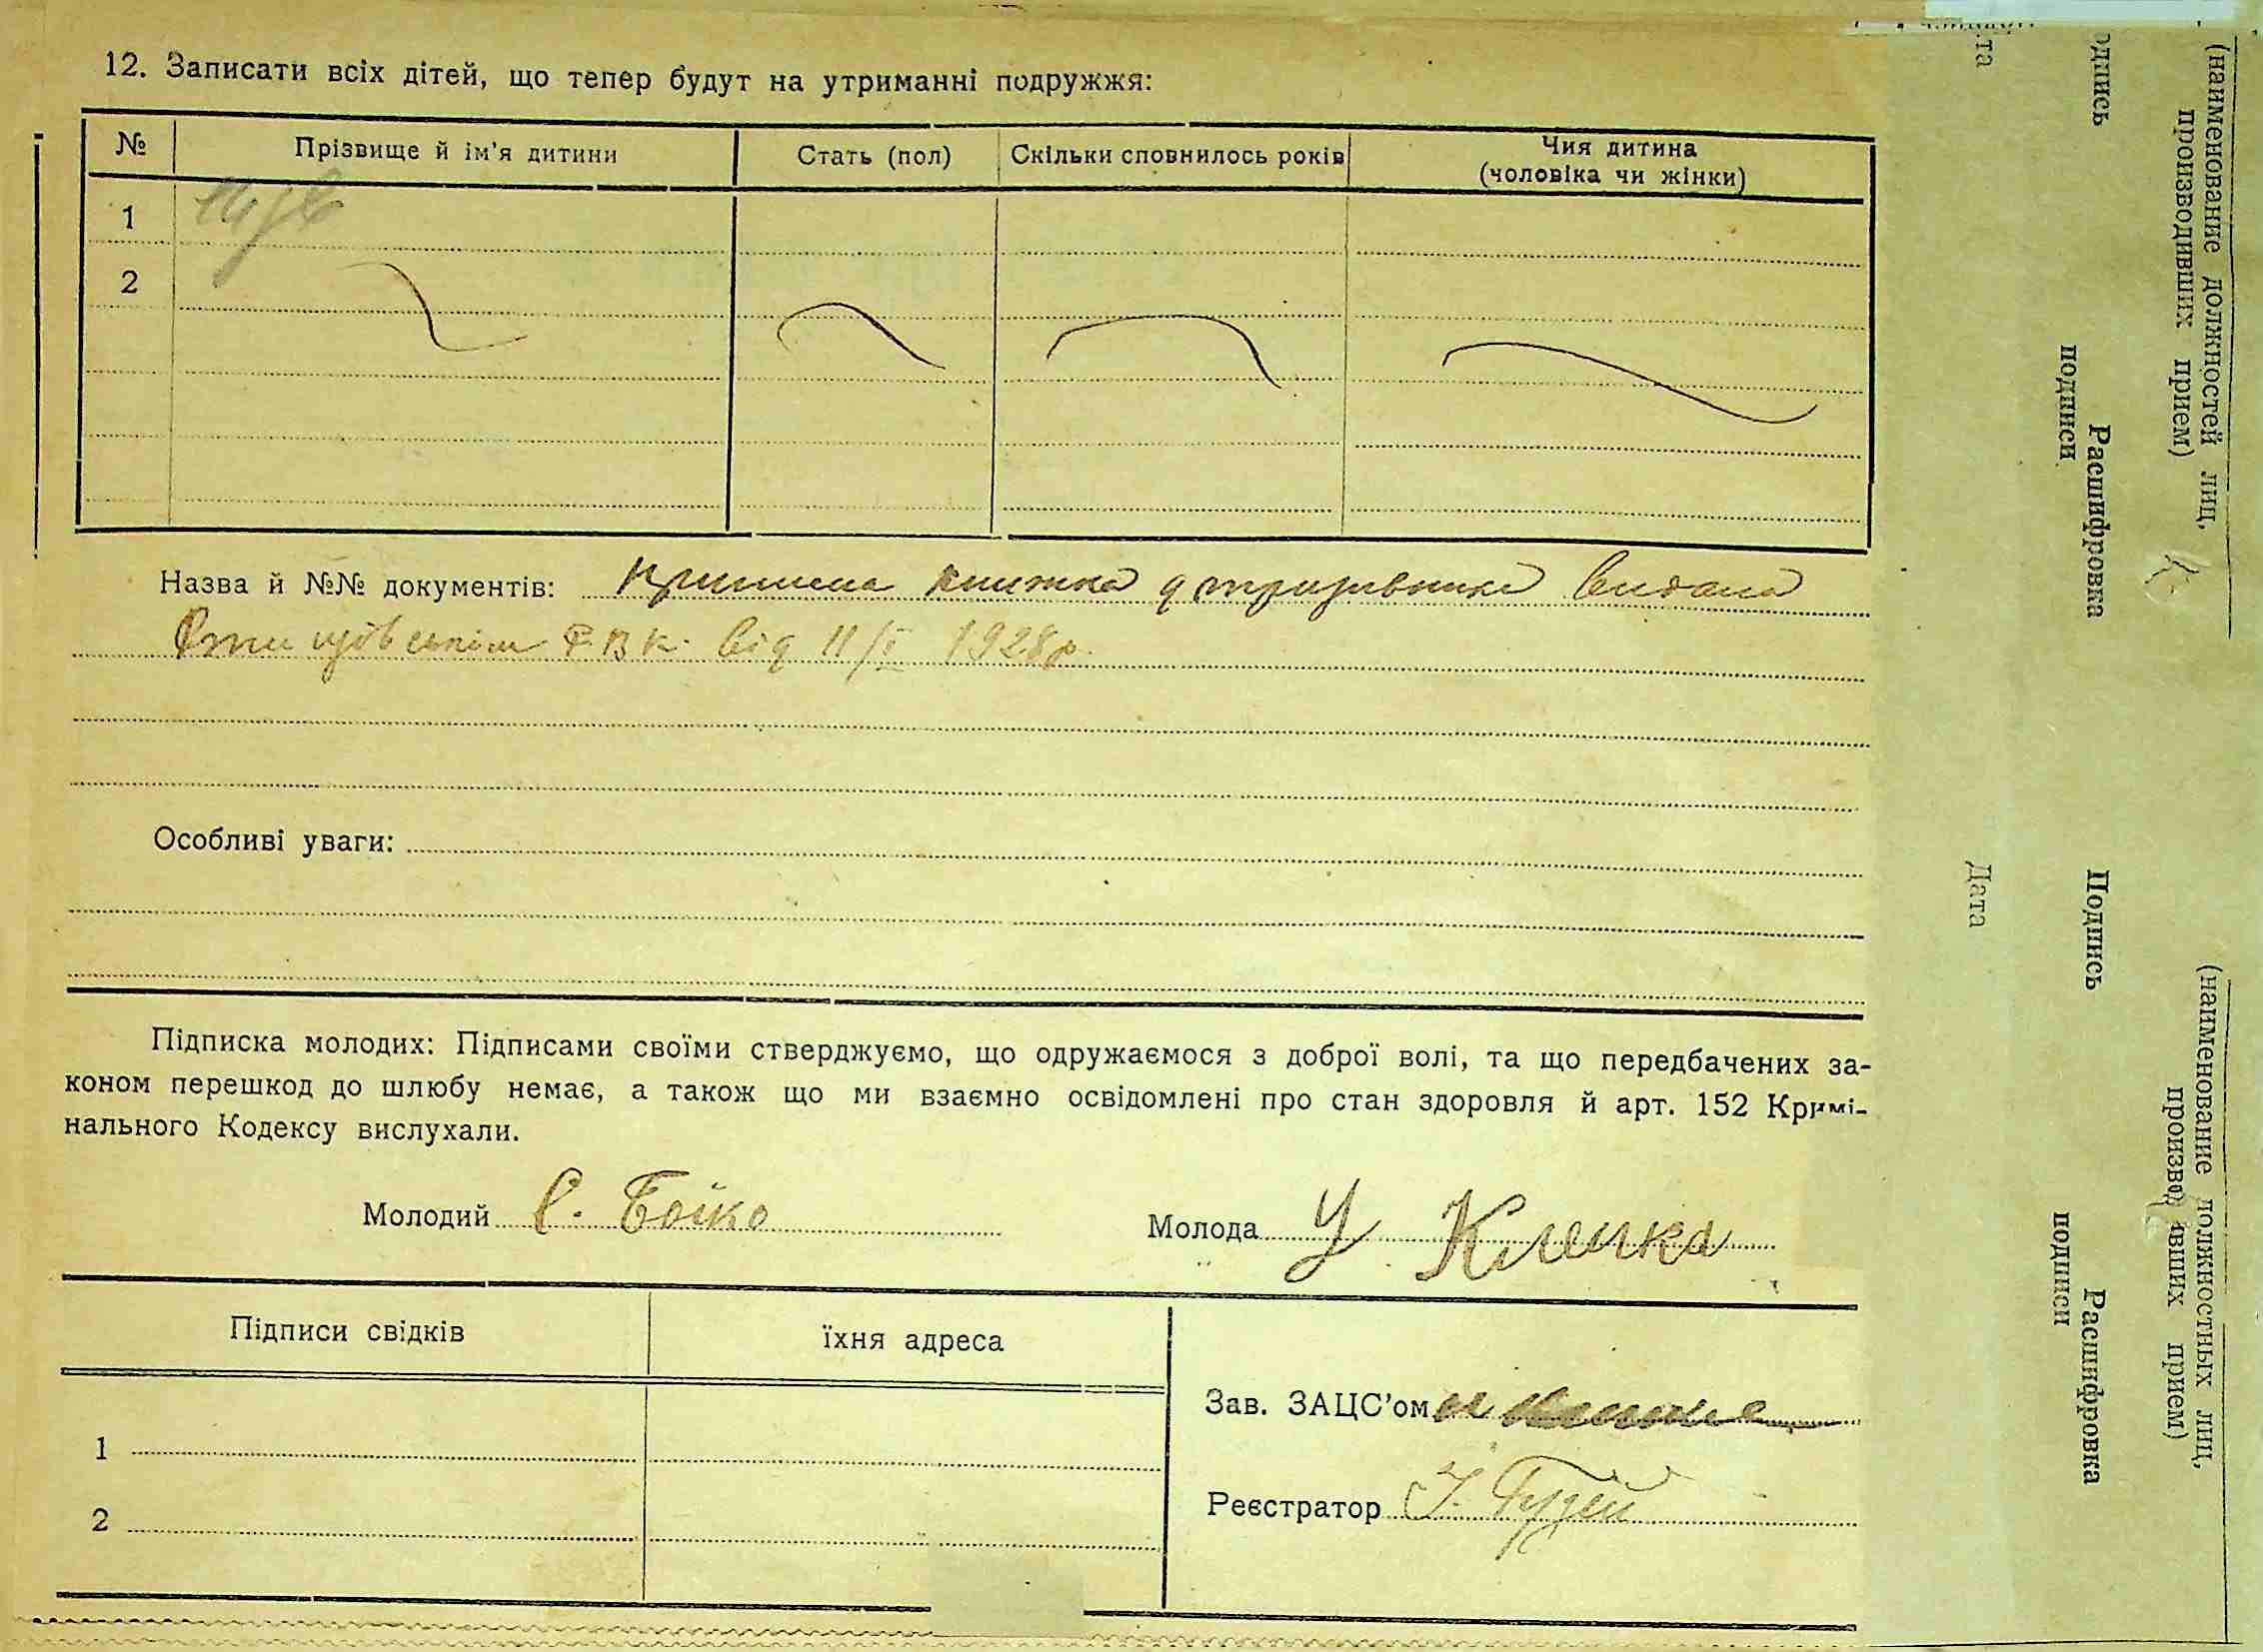 12. Записати всіх дітей, що тепер будут на утриманні подружжя:
№ Прізвище й ім'я дитини Стать (пол) Скільки сповнилось років Чия дитина (чоловіка чи жінки)
1
2
Назва й №№ документів: книжка видана
Р.В.К. від 11/I 1928р.
Особливі уваги:
Підписка молодих: Підписами своїми стверджуємо, що одружаємося з доброї волі, та що передбачених за-
коном перешкод до шлюбу немає, а також що ми взаємно освідомлені про стан здоровля й арт. 152 Кримі-
нального Кодексу вислухали.
Молодий С. Бойко Молода У
Підписи свідків їхня адреса
Зав. ЗАЦС'ом
1
Реєстратор
2
та
одпись
(наименование должностей лиц,
производивших прием)
Расшифровка
подписи
Дата
Подпись
(наименование должностных лиц,
прием)
Расшифровка
подписи